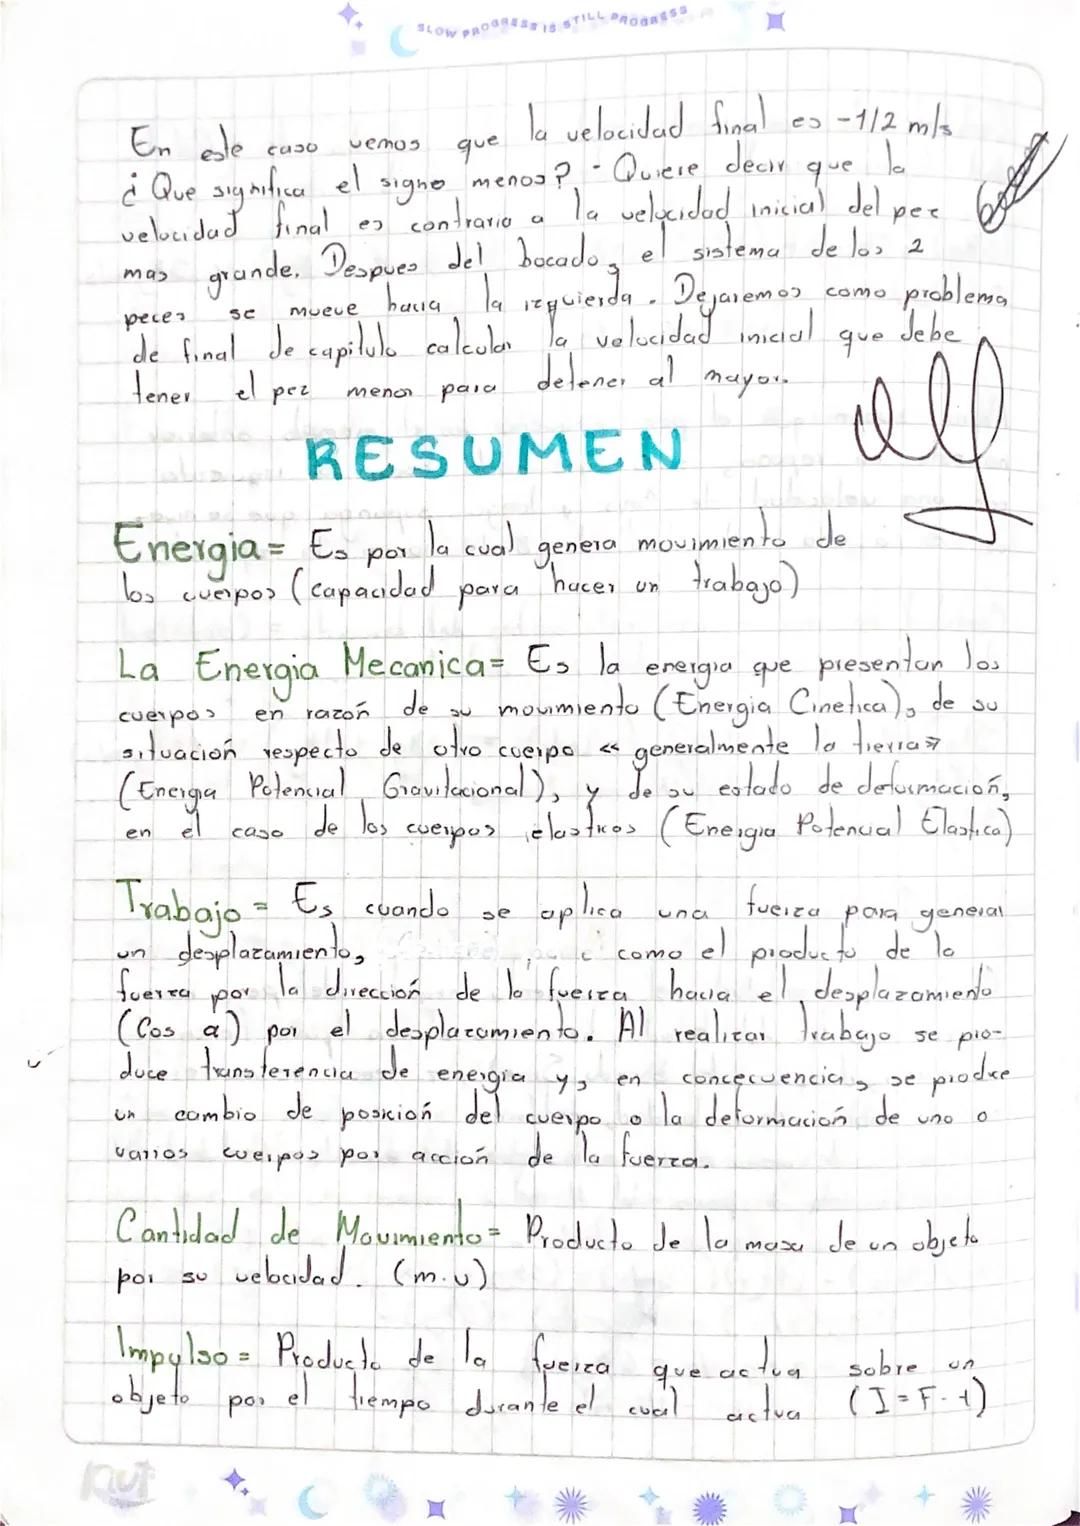 SLOW PROGRESS IS STILL PROGRESS
En este caso vemos que la velocidad final es -1/2 m/s
¿Que significa el signo menos? - Quiere decir que la
velocidad final es contraria a la velocidad inicial del pez
mas grande. Despues del bocado, el sistema de los 2
peces se mueve hacia la izquierda. Dejaremos como problema
de final de capitulo calcular la velocidad inicial que debe
tener el pez menor para detener al mayor.
RESUMEN
Energia = Es por la cual genera movimiento de
los cuerpos (capacidad para hacer un trabajo)
La Energia Mecanica = Es la energia que presentan los
cuerpos en razón de su movimiento (Energia Cinetica), de su
situación respecto de otro cuerpo << generalmente la tierra >>
(Energia Potencial Gravitacional), y de su estado de deformación,
en el caso de los cuerpos elasticos (Energia Potencial Elastica)
Trabajo = Es cuando se aplica una fuerza para generar
un desplazamiento, como el producto de la
fuerza por la dirección de la fuerza hacia el desplazamiento
(Cos a) por el desplazamiento. Al realizar trabajo se pro-
duce transferencia de energia y, en concecuencia, se produce
un cambio de posición del cuerpo o la deformación de uno o
varios cuerpos por acción de la fuerza.
Cantidad de Movimiento = Producto de la masa de un objeto
por su velocidad. (m.v)
Impulso = Producto de la fuerza que actua sobre un
objeto por el tiempo durante el cual actua (I = F. t)